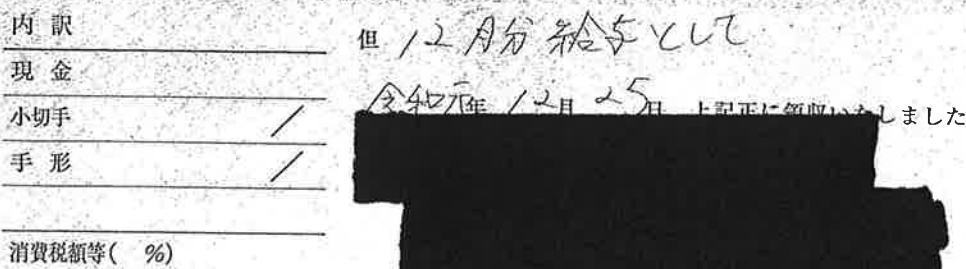 内訳
現金
小切手 /
手形 /
消費税額等( %)
但 12月分給与として
令和元年 12月 25日 上記正に領収いたしました